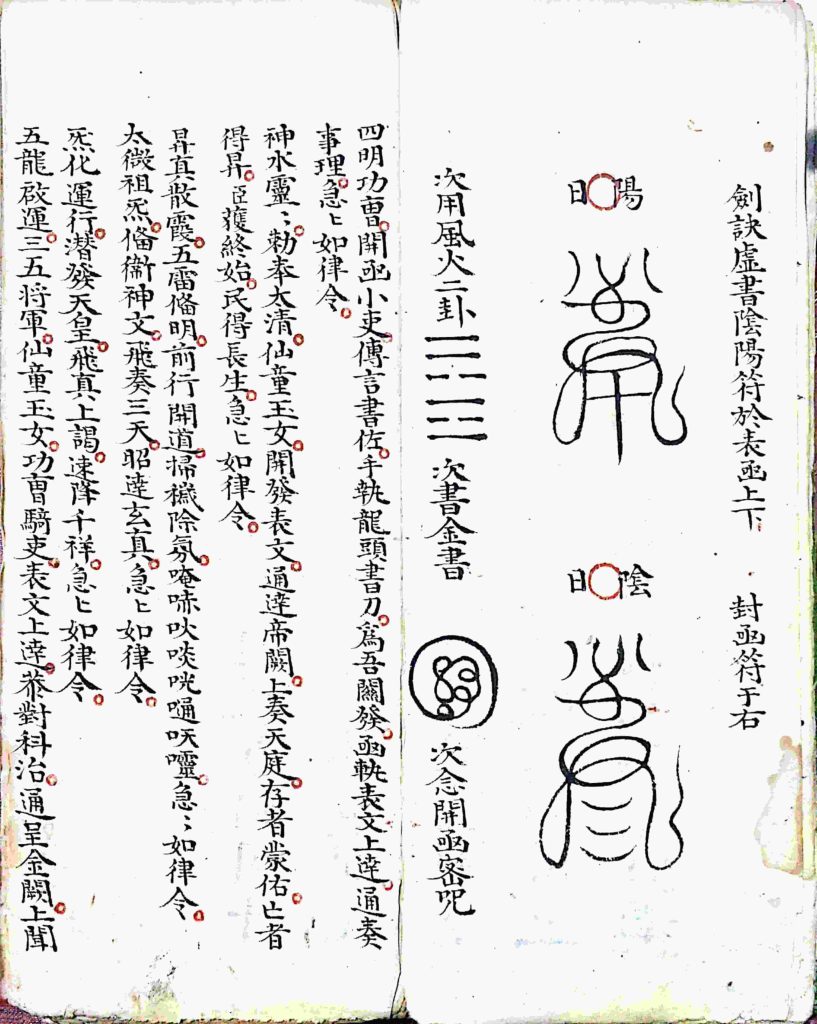 劍訣虛書陰陽符於表函上下 封函符于右
陽〇日
陰〇日
次用風火二卦 ☴☲ 次書金書 次念開函密呪
四明功曹開函小吏傳言書佐手執龍頭書刀為吾關發函執表文上達通奏
事理急匕如律令
神水靈〻勑奉太清仙童玉女開發表文通達帝闕上奏天庭存者蒙佑亡者
得昇臣獲終始民得長生急匕如律令
昇真散霞五雷俻明前行開道掃穢除氛唵㖇吙啖咣嗵呋囒急〻如律令
太微祖炁俻衛神文飛奏三天昭達玄真急匕如律令
炁化運行潛發天皇飛真上謁速降千祥急匕如律令
五龍啟運三五将軍仙童玉女功曹騎吏表文上達恭對科治通呈金闕上聞